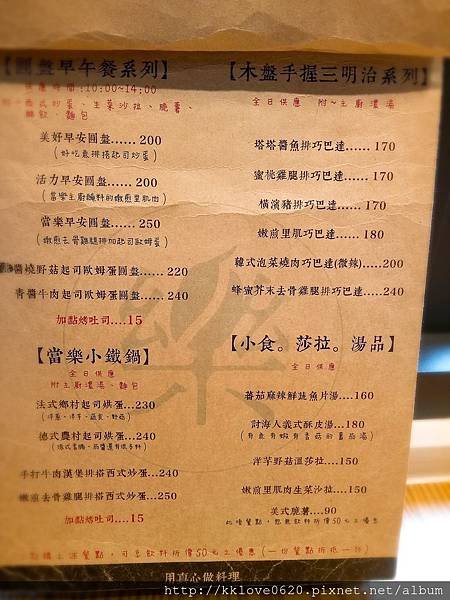 【圓盤早午餐系列】
供應時間:10:00~14:00
附~西式炒蛋、生菜沙拉、脆薯、
麵包
美好早安圓盤......200
(好吃素排搭起司炒蛋)
活力早安圓盤......200
(當樂主廚醃料的嫩煎里肌肉)
當樂早安圓盤......250
(嫩煎去骨雞腿排加起司歐姆蛋)
醬燒野菇起司歐姆蛋圓盤......220
青醬牛肉起司歐姆蛋圓盤......240
加點烤吐司....15
【當樂小鐵鍋】
全日供應
附主廚濃湯、麵包
法式鄉村起司烘蛋...230
(洋蔥、洋芋、蔬食、野菇)
德式農村起司烘蛋...240
手打牛肉漢堡排搭西式炒蛋...250
嫩煎去骨雞腿排搭西式炒蛋...250
加點烤吐司....15
【木盤手握三明治系列】
全日供應 附~主廚濃湯
塔塔醬魚排巧巴達...... 170
蜜桃雞腿排巧巴達...... 170
橫濱豬排巧巴達...... 170
嫩煎里肌巧巴達...... 180
韓式泡菜燒肉巧巴達(微辣)......200
蜂蜜芥末去骨雞腿排巧巴達......240
【小食。莎拉。湯品】
全日供應
蕃茄麻辣鮮蔬魚片湯....160
討海人義式酥皮湯....180
(有魚有蝦有香菇的蕃茄湯)
洋芋野菇溫莎拉....150
嫩煎里肌肉生菜沙拉....150
美式脆薯....90
點購上述餐點,可享飲料折價50元之優惠(一份餐點折抵一杯)
用真心做料理
http://kklove0620.pixnet.net/album